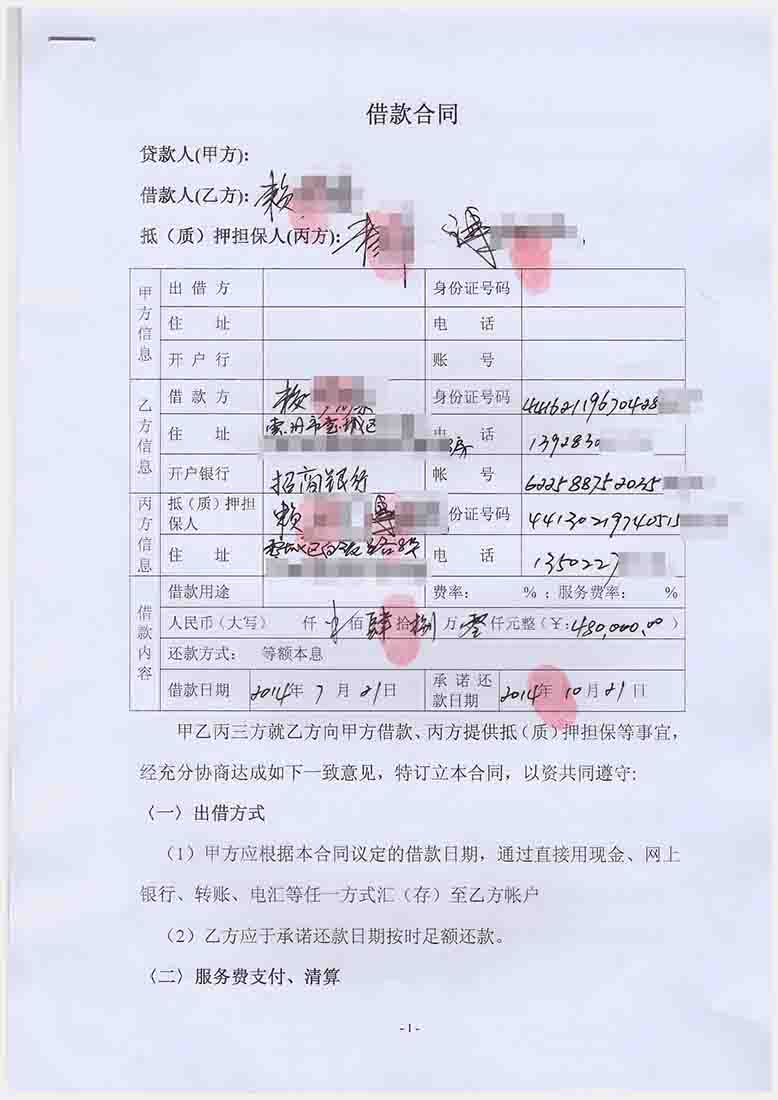 借款合同
贷款人(甲方):
借款人(乙方): 赖
抵（质）押担保人(丙方):
甲方信息
出借方 身份证号码
住 址 电 话
开户行 账 号
乙方信息
借款方 身份证号码 44162119670428
住 址 市 城区 电 话 139283
开户银行 招商银行 帐 号 622588752035
丙方信息
抵（质）押担保人 赖 份证号码 44130219740515
住 址 电 话 1350227
借款内容
借款用途 费率： %；服务费率： %
人民币（大写） 仟 佰肆拾捌万零仟元整（¥:480,000.00）
还款方式： 等额本息
借款日期 2014年7月21日 承诺还款日期 2014年10月21日
甲乙丙三方就乙方向甲方借款、丙方提供抵（质）押担保等事宜，
经充分协商达成如下一致意见，特订立本合同，以资共同遵守:
〈一〉出借方式
（1）甲方应根据本合同议定的借款日期，通过直接用现金、网上
银行、转账、电汇等任一方式汇（存）至乙方帐户
（2）乙方应于承诺还款日期按时足额还款。
〈二〉服务费支付、清算
- 1 -